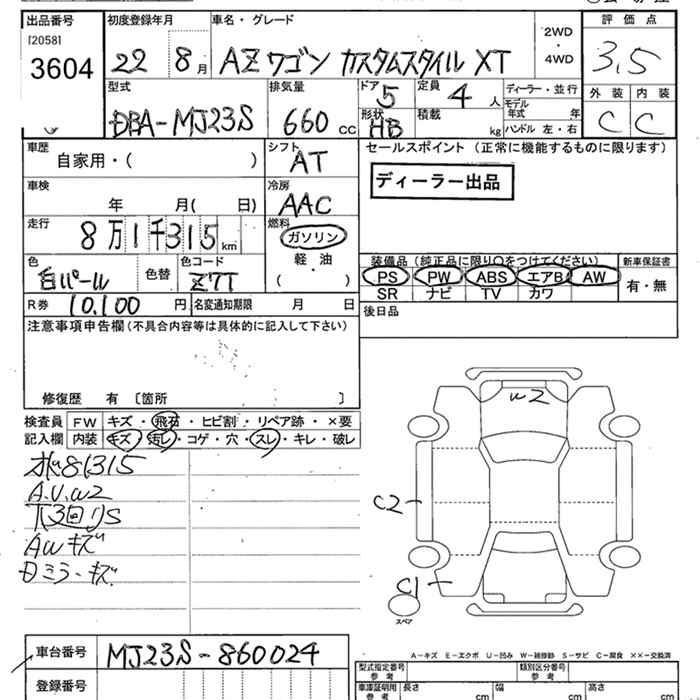 出品番号 初度登録年月 車名・グレード 2WD・4WD 評価点
[2058]
3604 22年 8月 AZワゴン カスタムスタイル XT 3.5
型式 排気量 ドア 5 定員 4人 ディーラー・並行 外装 内装
DBA-MJ23S 660cc 形状 HB 積載 kg モデル年式 年 C C
ハンドル 左・右
車歴 シフト セールスポイント(正常に機能するものに限ります)
自家用・( ) AT ディーラー出品
車検 冷房
年 月( 日) AAC
走行 燃料
8万1千315km ガソリン
軽・油
( )
色 色替 色コード 装備品(純正品に限り○をつけてください) 新車保証書
白パール Z7T PS PW ABS エアB AW 有・無
SR ナビ TV カワ
R券 10,100円 名変通知期限 月 日 後日品
注意事項申告欄(不具合内容等は具体的に記入して下さい)
修復歴 有 〔箇所 〕
検査員 FW キズ・飛石・ヒビ割・リペア跡・×要
記入欄 内装 キズ・汚レ・コゲ・穴・スレ・キレ・破レ
81315
A.U.W2
下回りS
AWキズ
Dミラーキズ
W2
C2
C1
スペア
A-キズ E-エクボ U-凹み W-補修跡 S-サビ C-腐食 ××-交換済
車台番号 MJ23S-860024
登録番号
型式指定番号 参考 類別区分番号 参考
車庫証明用 参考 長さ cm 幅 cm 高さ cm